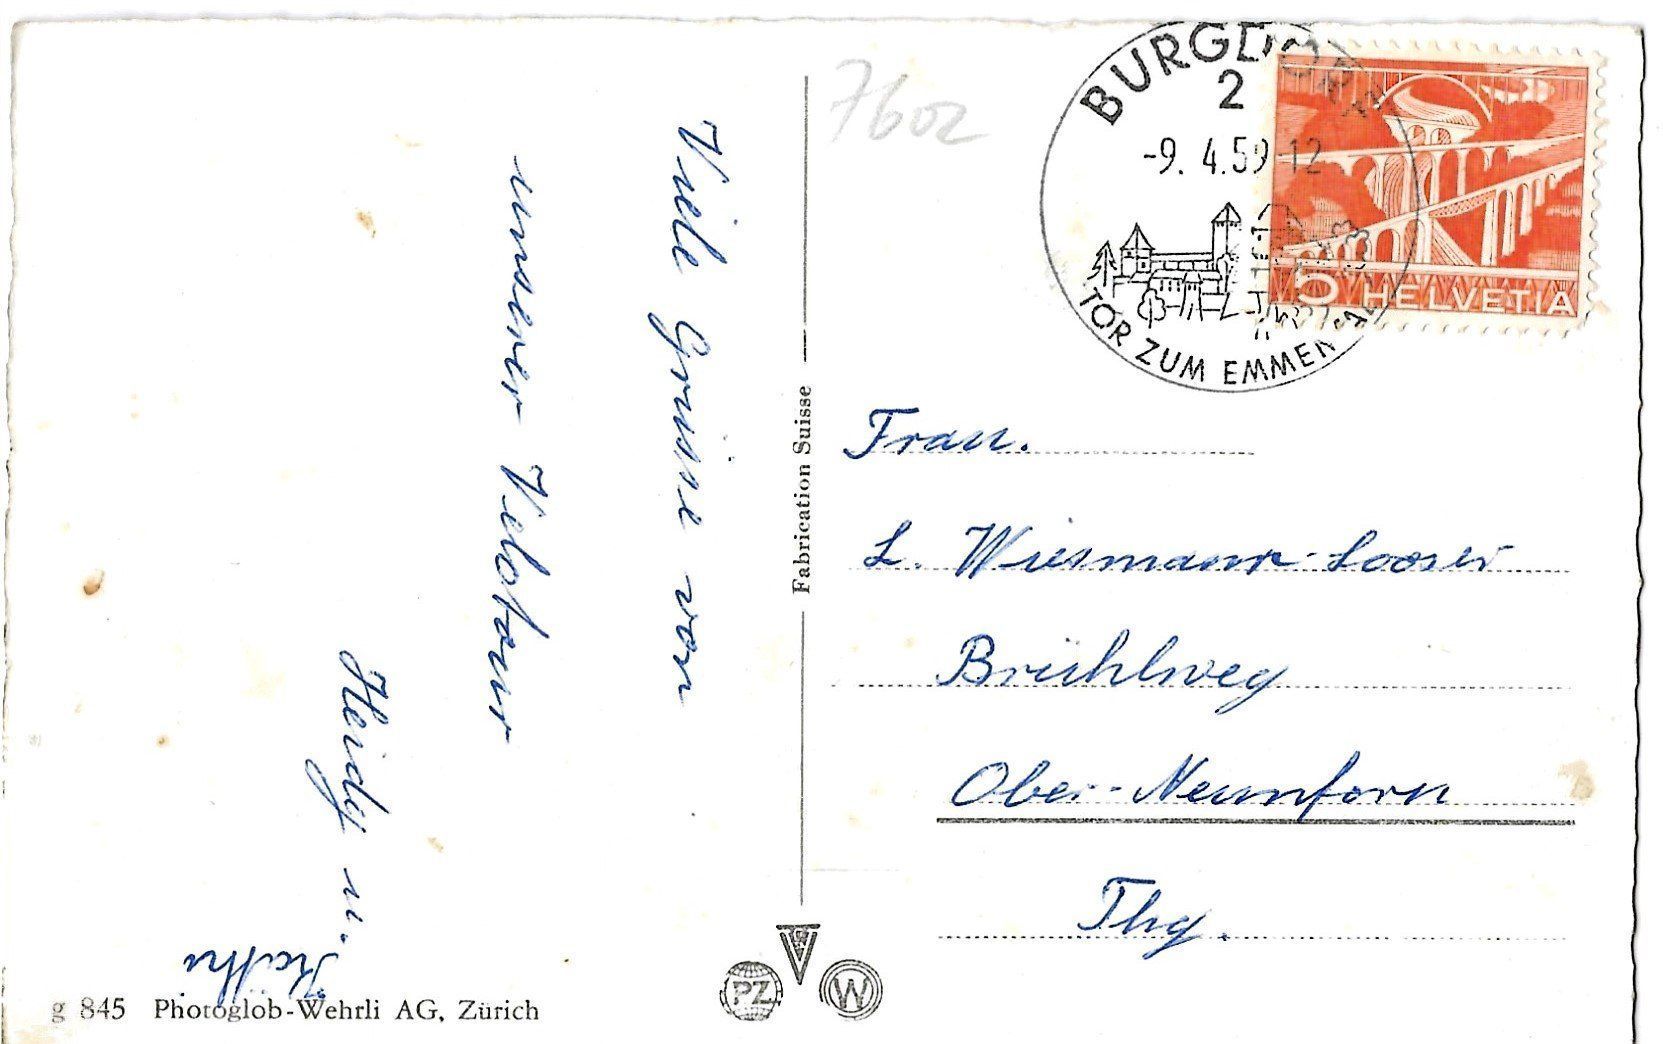 Viele Grüsse von
unserer Velotour
Heidy u.
Käthi
g 845 Photoglob-Wehrli AG, Zürich
Fabrication Suisse
PZ
G
W
7602
BURGDORF
2
-9. 4.59-12
TOR ZUM EMMENTAL
5 HELVETIA
Frau.
L. Wiesmann-Looser
Brühlweg
Ober-Neunforn
Thg.